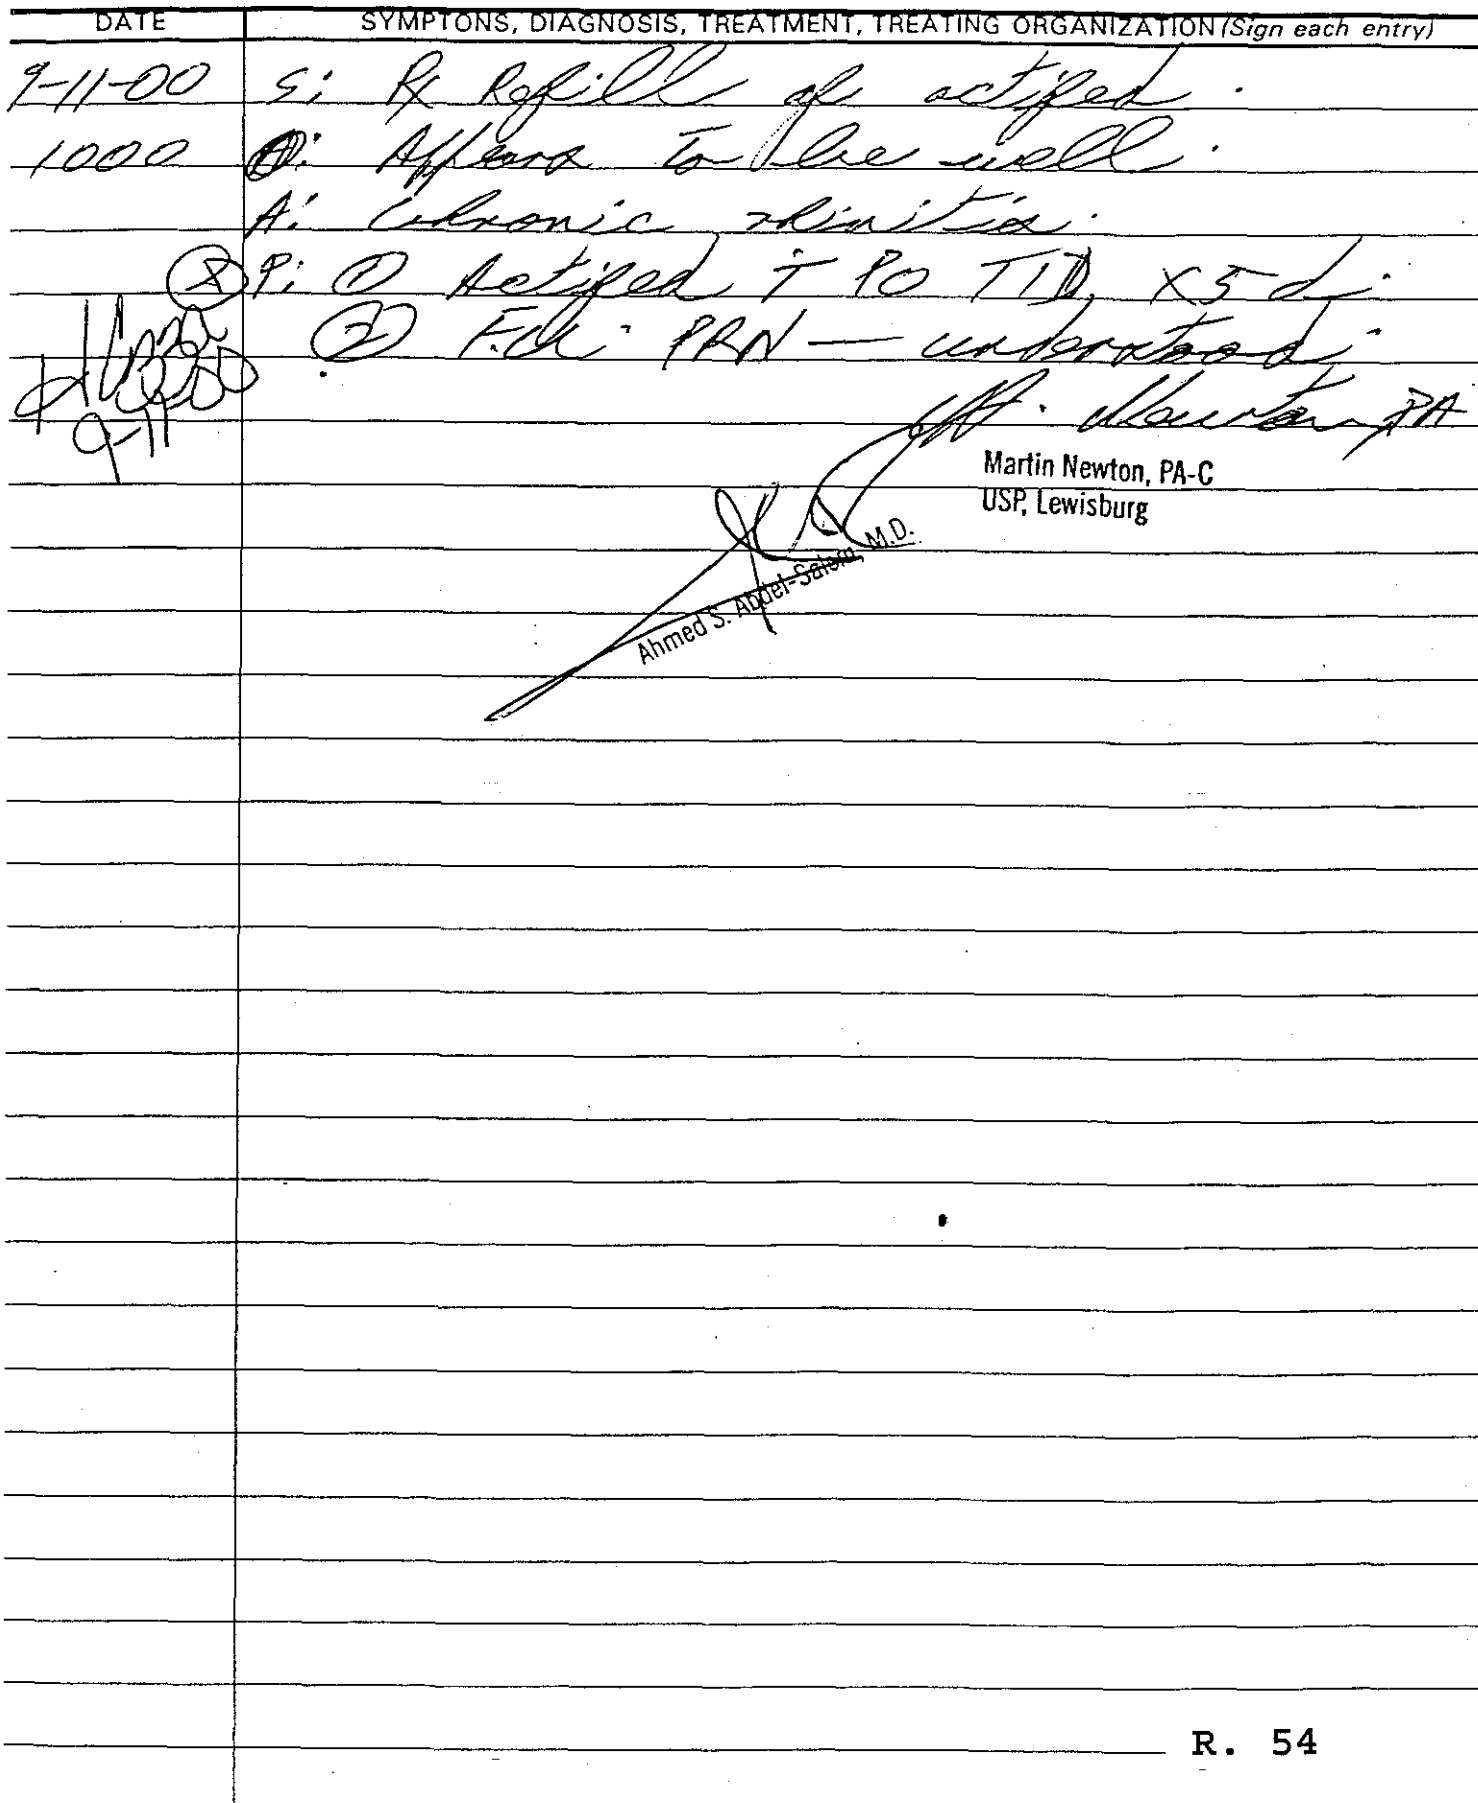 DATE SYMPTONS, DIAGNOSIS, TREATMENT, TREATING ORGANIZATION (Sign each entry)
9-11-00 S: Rx Refill of actifed.
1000 O: Appears to be well.
A: Chronic rhinitis.
P: ① Actifed T PO TID, x5 d.
② F.U. PRN — understood.
9-11
M. Newton, PA
Martin Newton, PA-C
USP, Lewisburg
Ahmed S. Abdel-Salem, M.D.
R. 54